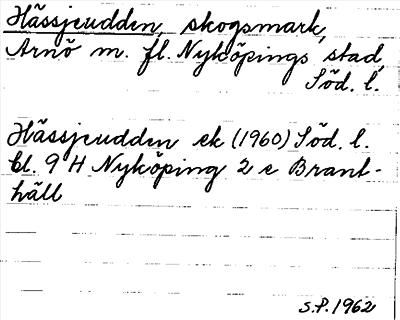 Hässjeudden, skogsmark,
Arnö m. fl. Nyköpings stad,
Söd. l.
Hässjeudden ek (1960) Söd. l.
bl. 9 H Nyköping 2 e Brant-
häll
S.P. 1962